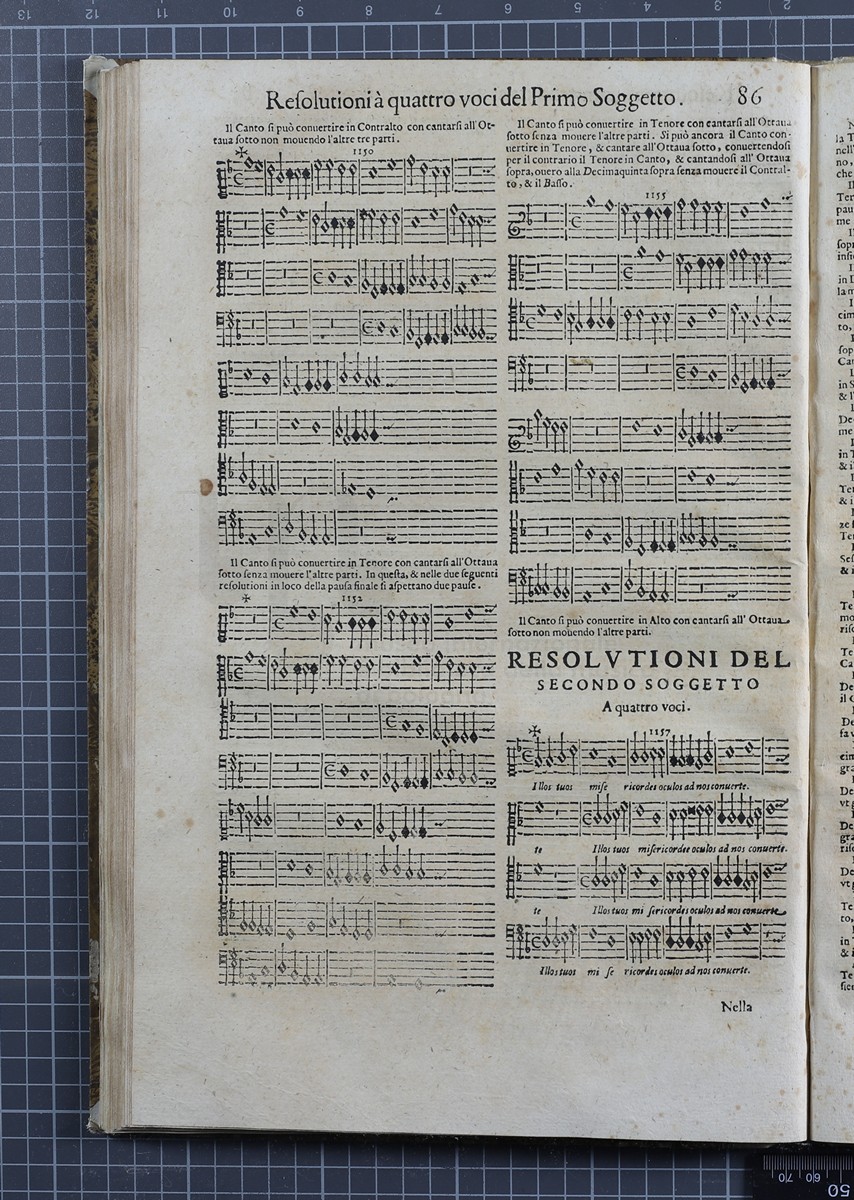 Reſolutioni à quattro voci del Primo Soggetto. 86
Il Canto ſi può conuertire in Contralto con cantarſi all'Ot-
taua ſotto non mouendo l'altre tre parti.
1150
Il Canto ſi può conuertire in Tenore con cantarſi all'Ottaua
ſotto ſenza mouere l'altre parti. In queſta, & nelle due ſeguenti
reſolutioni in loco della pauſa finale ſi aſpettano due pauſe.
1152
Il Canto ſi può conuertire in Tenore con cantarſi all'Ottaua
ſotto ſenza mouere l'altre parti. Si può ancora il Canto con-
uertire in Tenore, & cantare all'Ottaua ſotto, conuertendoſi
per il contrario il Tenore in Canto, & cantandoſi all' Ottaua
ſopra, ouero alla Decimaquinta ſopra ſenza mouere il Contral-
to, & il Baſſo.
1155
Il Canto ſi può conuertire in Alto con cantarſi all' Ottaua
ſotto non mouendo l'altre parti.
RESOLVTIONI DEL
SECONDO SOGGETTO
A quattro voci.
1157
Illos tuos miſe ricordes oculos ad nos conuerte.
te Illos tuos miſericordes oculos ad nos conuerte.
te Illos tuos mi ſericordes oculos ad nos conuerte
Illos tuos mi ſe ricordes oculos ad nos conuerte.
Nella
13 12 11 10 9 8 7 6 5 4 3 2
70 60 50